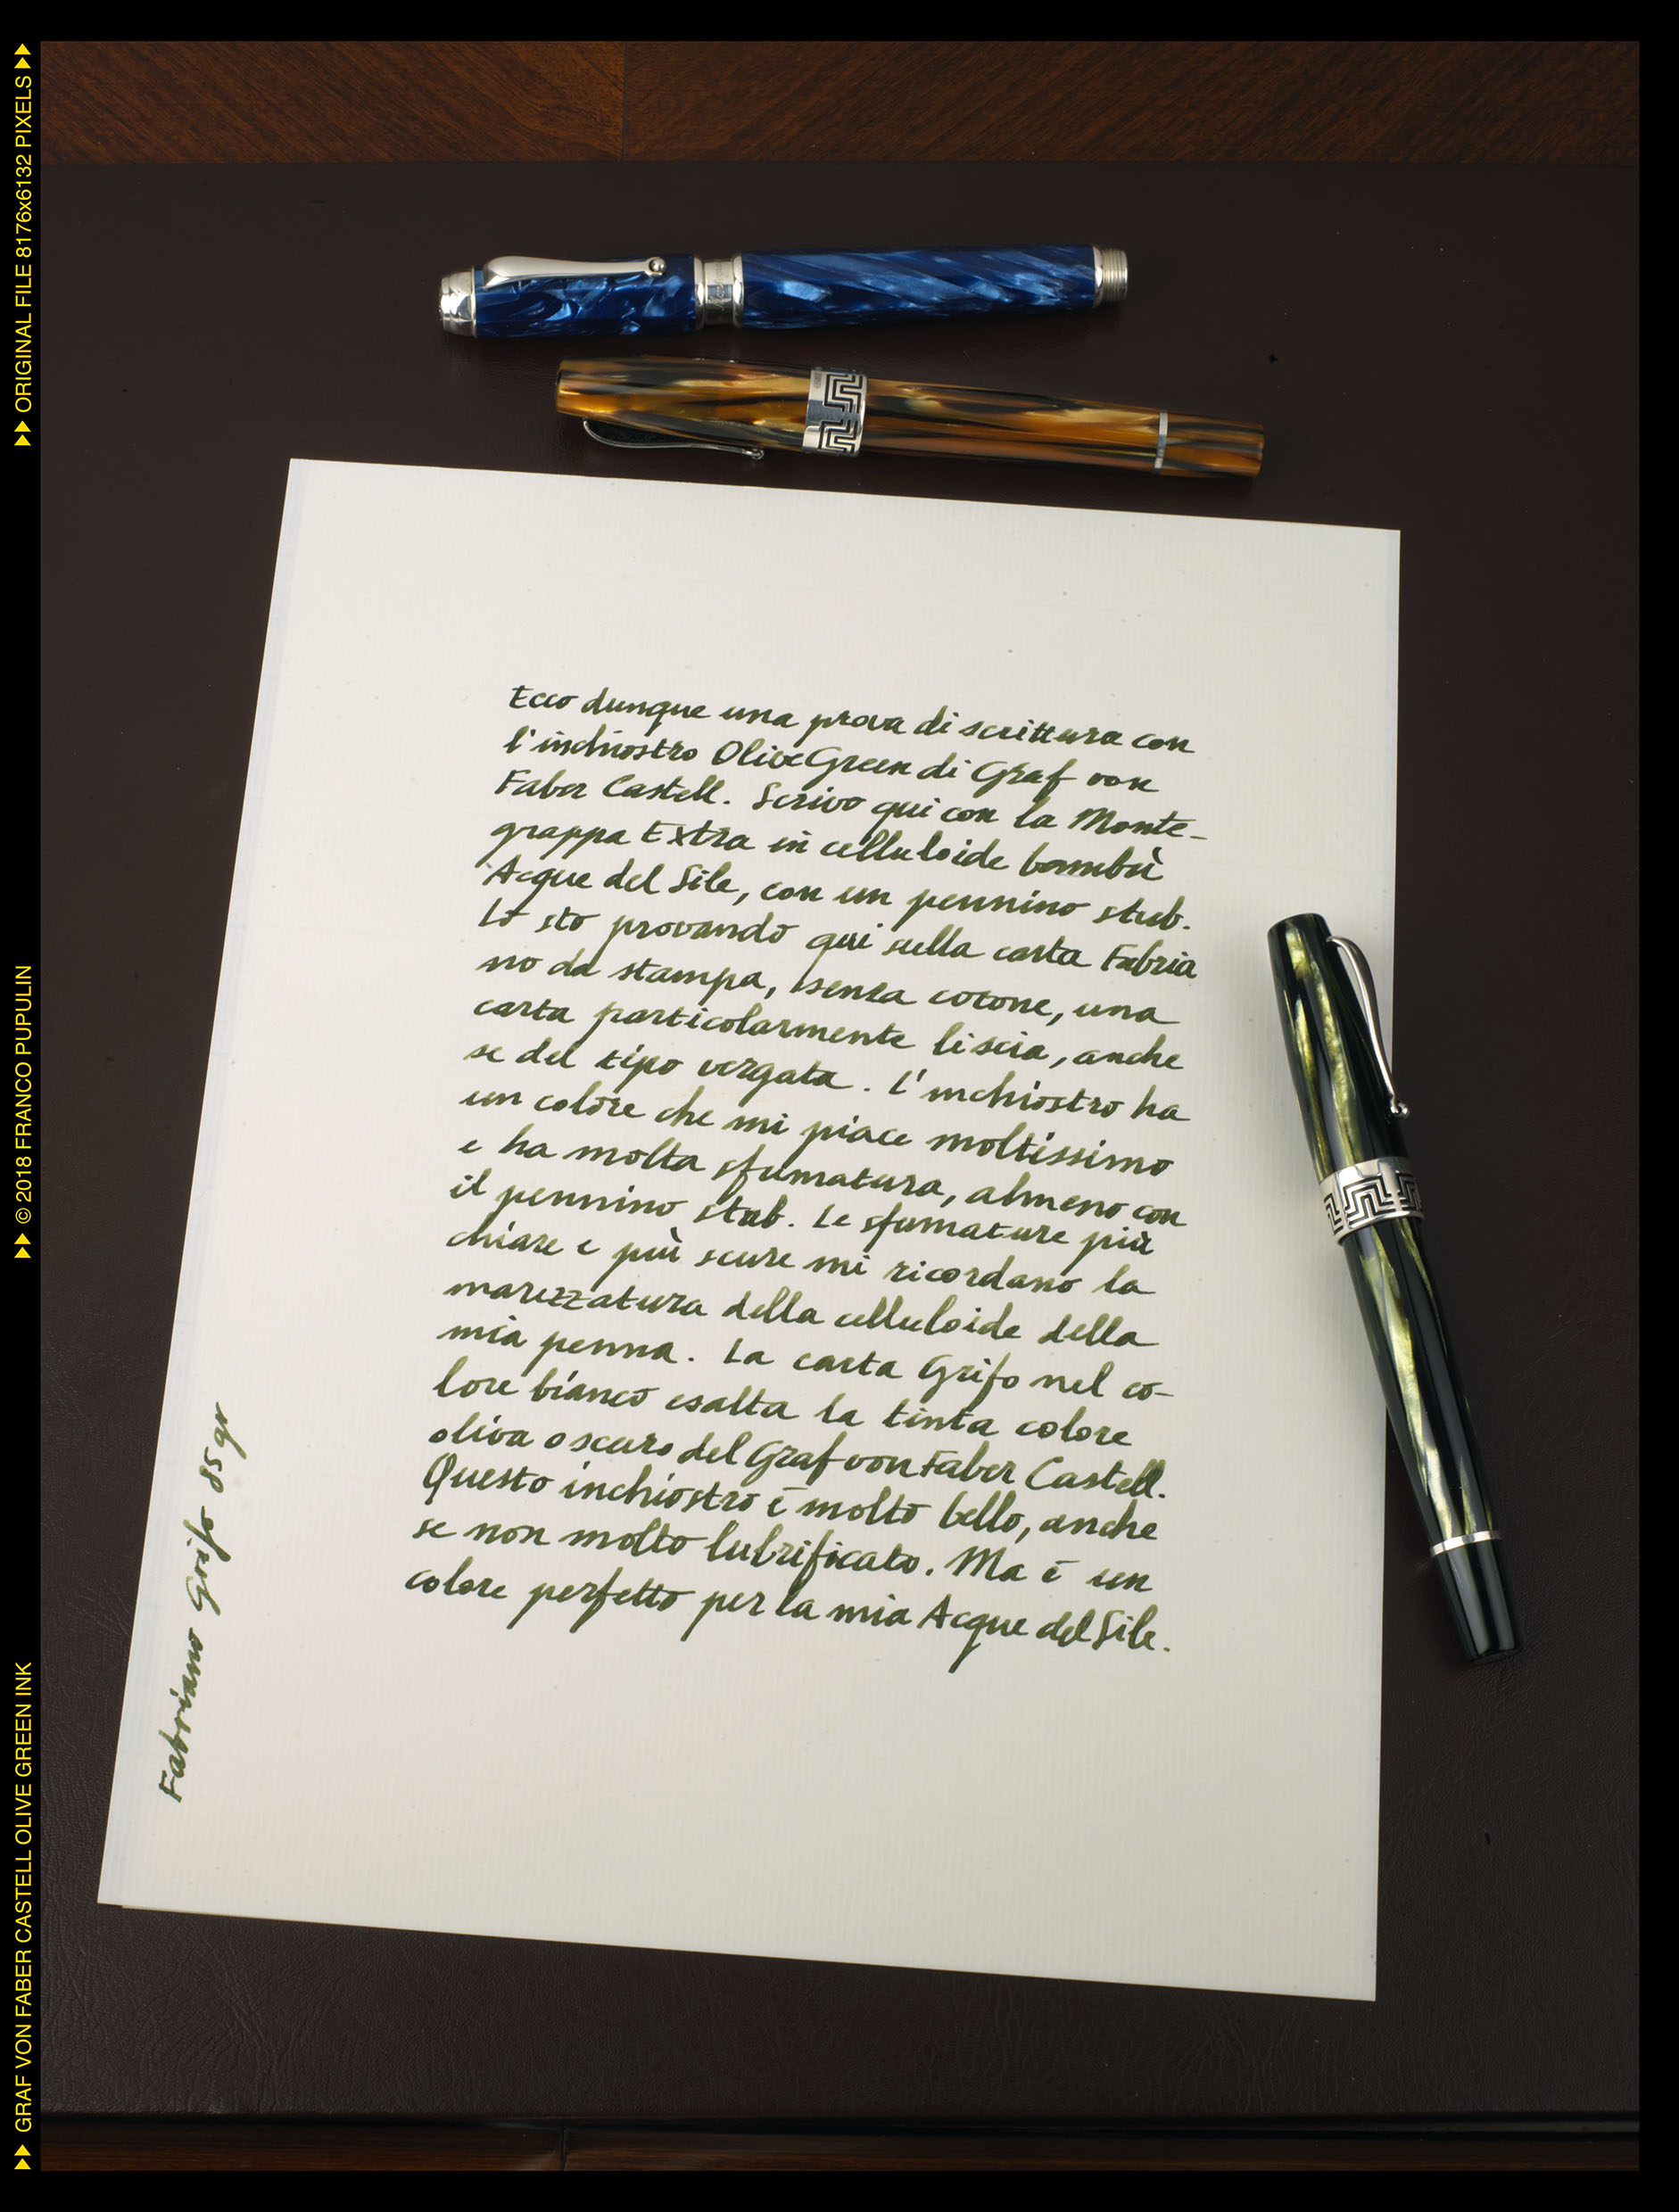 Ecco dunque una prova di scrittura con
l'inchiostro Olive Green di Graf von
Faber Castell. Scrivo qui con la Monte-
grappa Extra in celluloide bambù
Acque del Sile, con un pennino stub.
Lo sto provando qui sulla carta Fabria
no da stampa, senza cotone, una
carta particolarmente liscia, anche
se del tipo vergata. L'inchiostro ha
un colore che mi piace moltissimo
e ha molta sfumatura, almeno con
il pennino stub. Le sfumature più
chiare e più scure mi ricordano la
marezzatura della celluloide della
mia penna. La carta Grifo nel co-
lore bianco esalta la tinta colore
oliva oscuro del Graf von Faber Castell.
Questo inchiostro è molto bello, anche
se non molto lubrificato. Ma è un
colore perfetto per la mia Acque del Sile.
Fabriano Grifo 85 gr
ORIGINAL FILE 8176x6132 PIXELS
© 2018 FRANCO PUPULIN
GRAF VON FABER CASTELL OLIVE GREEN INK